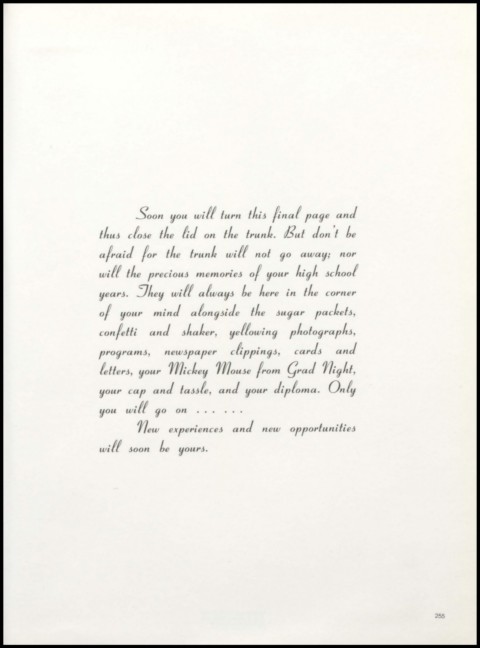 Soon you will turn this final page and
thus close the lid on the trunk. But don't be
afraid for the trunk will not go away; nor
will the precious memories of your high school
years. They will always be here in the corner
of your mind alongside the sugar packets,
confetti and shaker, yellowing photographs,
programs, newspaper clippings, cards and
letters, your Mickey Mouse from Grad Night,
your cap and tassle, and your diploma. Only
you will go on . . . . . .
New experiences and new opportunities
will soon be yours.
255